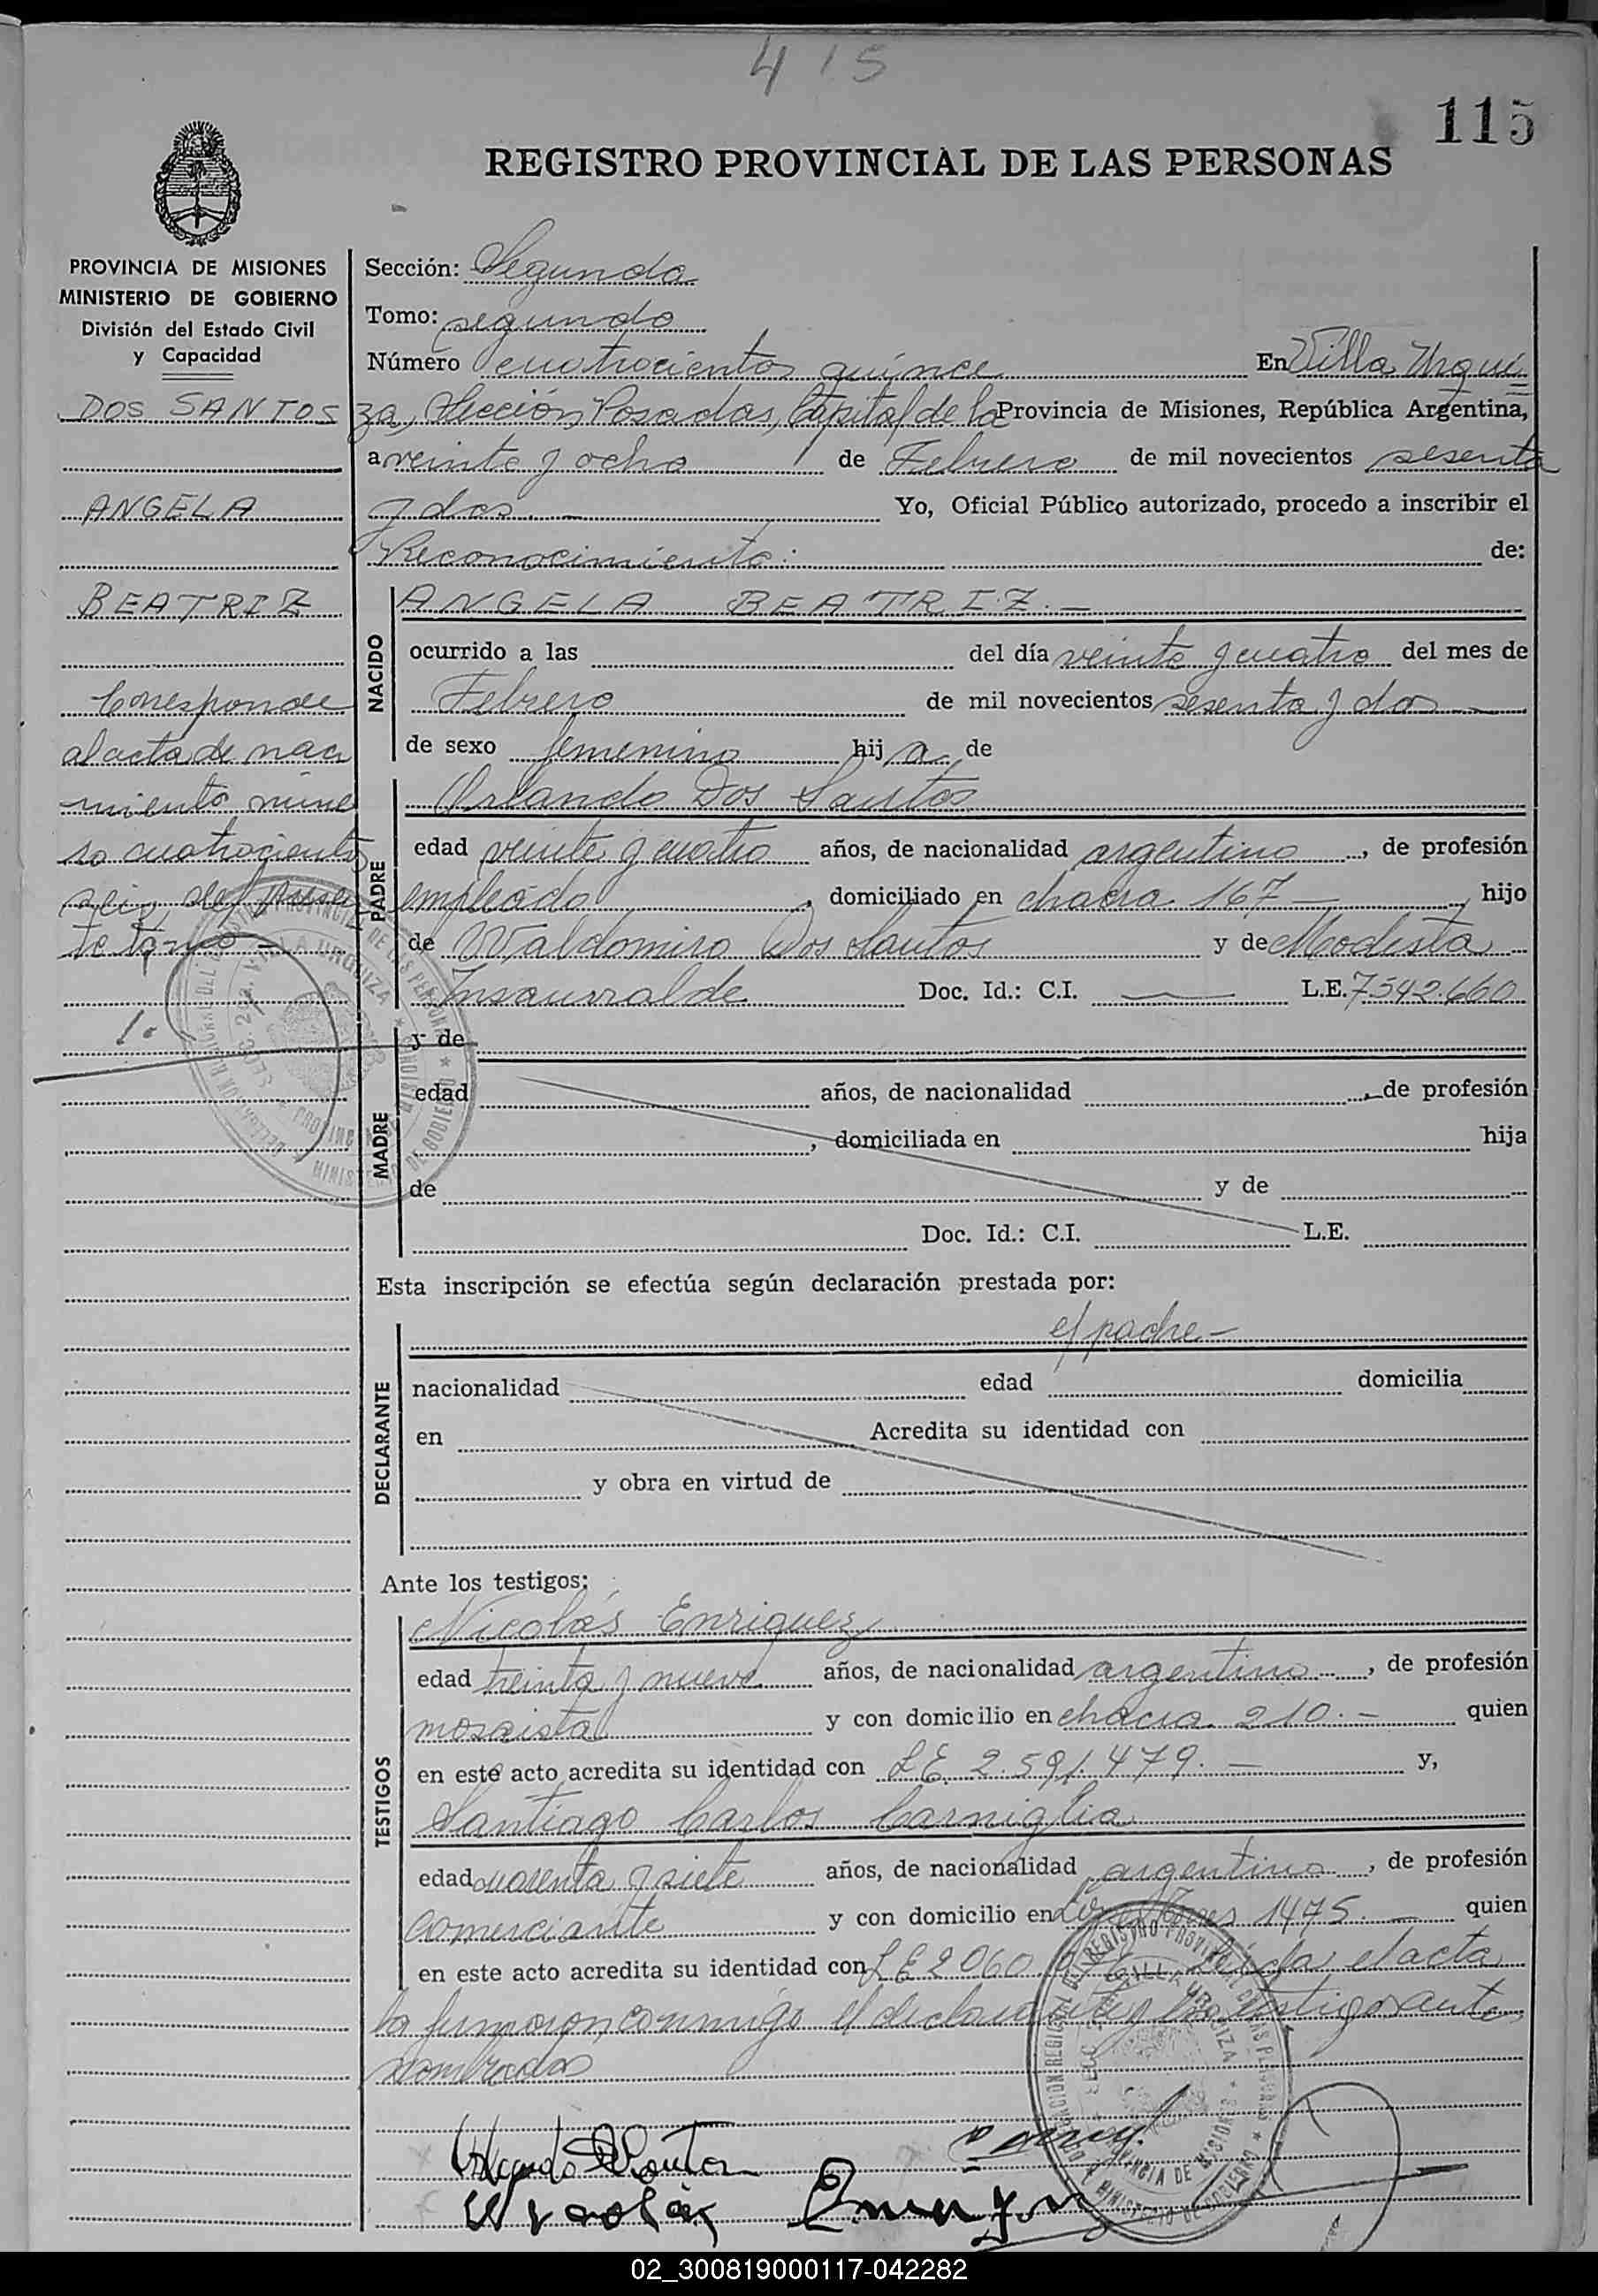 415
115
REGISTRO PROVINCIAL DE LAS PERSONAS
PROVINCIA DE MISIONES
MINISTERIO DE GOBIERNO
División del Estado Civil
y Capacidad
DOS SANTOS
ANGELA
BEATRIZ
Corresponde
al acta de naci
miento núme
ro cuatrocientos
diez del presen
te tomo -
Sección: Segunda
Tomo: segundo
Número cuatrocientos quince En Villa Urqui
za, Sección Posadas, Capital de la Provincia de Misiones, República Argentina,
a veinte y ocho de Febrero de mil novecientos sesenta
y dos. - Yo, Oficial Público autorizado, procedo a inscribir el
Reconocimiento: de:
NACIDO
ANGELA BEATRIZ. -
ocurrido a las del día veinte y cuatro del mes de
Febrero de mil novecientos sesenta y dos -
de sexo femenino hija de
PADRE
Orlando Dos Santos
edad veinte y cuatro años, de nacionalidad argentino, de profesión
empleado, domiciliado en chacra 167 -, hijo
de Waldomiro Dos Santos y de Modesta
Insaurralde Doc. Id.: C.I. — L.E. 7542.660
MADRE
y de
edad años, de nacionalidad , de profesión
, domiciliada en hija
de y de
Doc. Id.: C.I. L.E.
Esta inscripción se efectúa según declaración prestada por:
DECLARANTE
el padre -
nacionalidad edad domicilia
en Acredita su identidad con
y obra en virtud de
Ante los testigos:
TESTIGOS
Nicolás Enriquez
edad treinta y nueve años, de nacionalidad argentino, de profesión
mosaista y con domicilio en chacra 210. - quien
en este acto acredita su identidad con LE 2.591.479. - y,
Santiago Carlos Carniglia
edad cuarenta y siete años, de nacionalidad argentino, de profesión
comerciante y con domicilio en 1475. - quien
en este acto acredita su identidad con LE 2060 Leída el acta
la firmaron conmigo el declarante y los testigos ante
nombrados
Orlando D Santos
Nicolás Enriquez
02_300819000117-042282